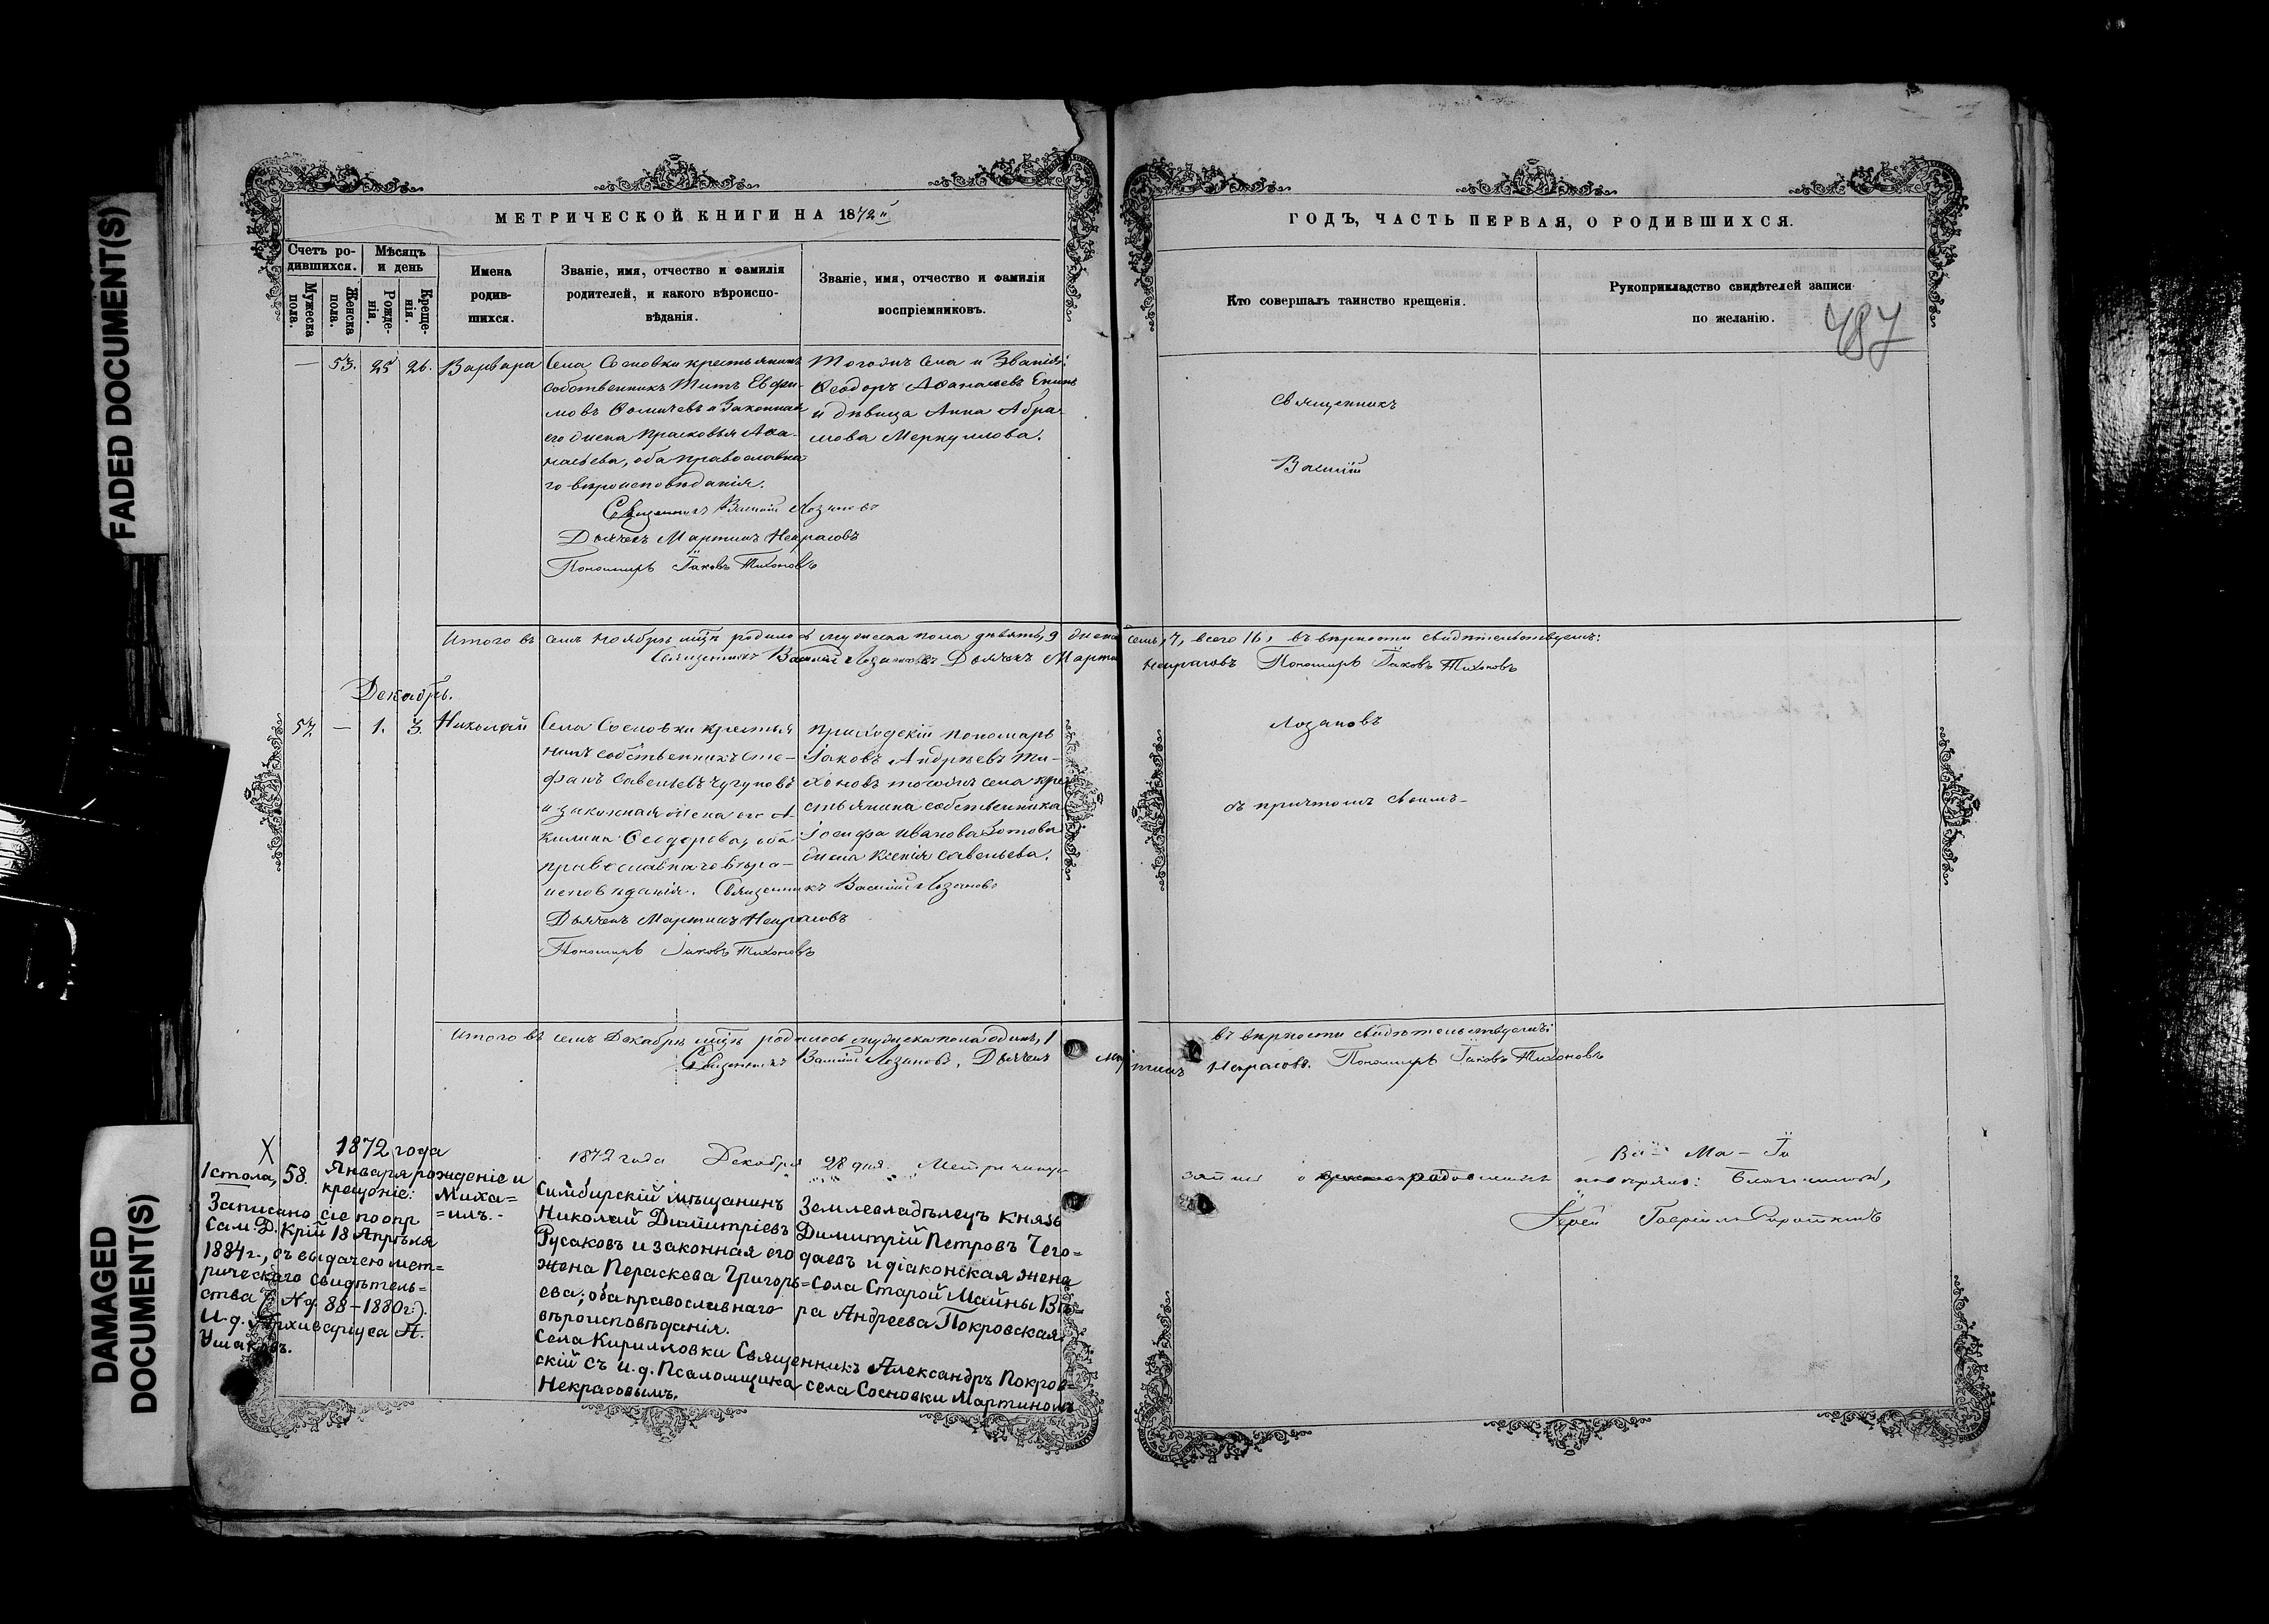 FADED DOCUMENT(S)
DAMAGED DOCUMENT(S)
МЕТРИЧЕСКОЙ КНИГИ НА 1872й
Счетъ родившихся.
Мужеска пола.
Женска пола.
Мѣсяцъ и день
Рожденія.
Крещенія.
Имена
родив-
шихся.
Званіе, имя, отчество и фамилія
родителей, и какого вѣроиспо-
вѣданія.
Званіе, имя, отчество и фамилія
воспріемниковъ.
— 53. 25 26. Варвара
Села Сосновки крестьянинъ
собственникъ Титъ Евфи-
мовъ Фомичевъ и законная
его жена Прасковья Афа-
насьева, оба православна
го вѣроисповѣданія.
Священникъ Василій Лозановъ
Дьячекъ Мартинъ Некрасовъ
Пономарь Іаковъ Тихоновъ
Тогожъ села и званія:
Ѳеодоръ Аѳанасьевъ
и дѣвица Анна Абра-
мова Меркулова.
Итого въ семъ Ноябрѣ мцѣ родилось мужеска пола девять, 9 женска
Священникъ Василій Лозановъ Дьячекъ Мартинъ
Декабрь.
57. — 1. 3. Николай
Села Сосновки крестья
нинъ собственникъ Сте-
фанъ Савельевъ Чугуновъ
и законная жена его А-
килина Ѳеодорова, оба
православнаго вѣро-
исповѣданія. Священникъ Василій Лозановъ
Дьячекъ Мартинъ Некрасовъ
Пономарь Іаковъ Тихоновъ
приходскій пономарь
Іаковъ Андрѣевъ Ти-
хоновъ тогожъ села кре
стьянина собственника
Іосифа Иванова Зотова
жена Ксенія Савельева.
Итого въ семъ Декабрѣ мцѣ родилось мужеска пола одинъ, 1
Священникъ Василій Лозановъ, Дьячекъ Мар
X
1872 года
1 стола, 58. Января рожденіе и
крещеніе:
Записано сіе по опр
Сам. Д. Крій 18 Апрѣля
1884 г., съ выдачею мет=
рическаго свидѣтель=
ства (№ 88-1880 г.).
И. д. Архиваріуса А.
Ушаковъ.
Миха=
=илъ.
1872 года Декабря 28 дня.
Симбирскій мѣщанинъ
Николай Димитріевъ
Русаковъ и законная его
жена Параскева Григорь=
ева; оба православнаго
вѣроисповѣданія.
Землевладѣлецъ князь
Димитрій Петровъ Чего=
даевъ и діаконская жена
села Старой Майны Вѣ=
ра Андреева Покровская.
Села Кирилловки Священникъ Александръ Покров=
скій съ и. д. Псаломщика села Сосновки Мартиномъ
Некрасовымъ.
ГОДЪ, ЧАСТЬ ПЕРВАЯ, О РОДИВШИХСЯ.
Кто совершалъ таинство крещенія.
Рукоприкладство свидѣтелей записи
по желанію.
487
Священникъ
Василій
семь, 7, всего 16, въ вѣрности свидѣтельствуемъ:
Некрасовъ Пономарь Іаковъ Тихоновъ
Лозановъ
съ причтомъ своимъ-
въ вѣрности свидѣтельствуемъ:
тинъ Некрасовъ. Пономарь Іаковъ Тихоновъ
Іерей Гавріилъ